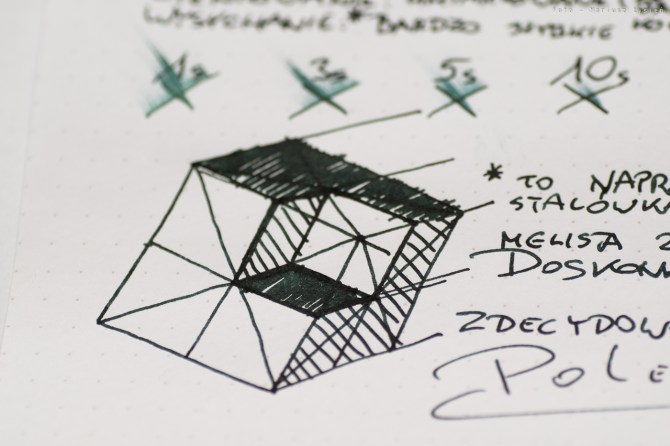 WYSYCHANIE: * BARDZO SZYBKIE
1s 3s 5s 10s
* TO NAPR
STALÓWKA
MELISA Z
DOSKON
ZDECYDOW
Pole